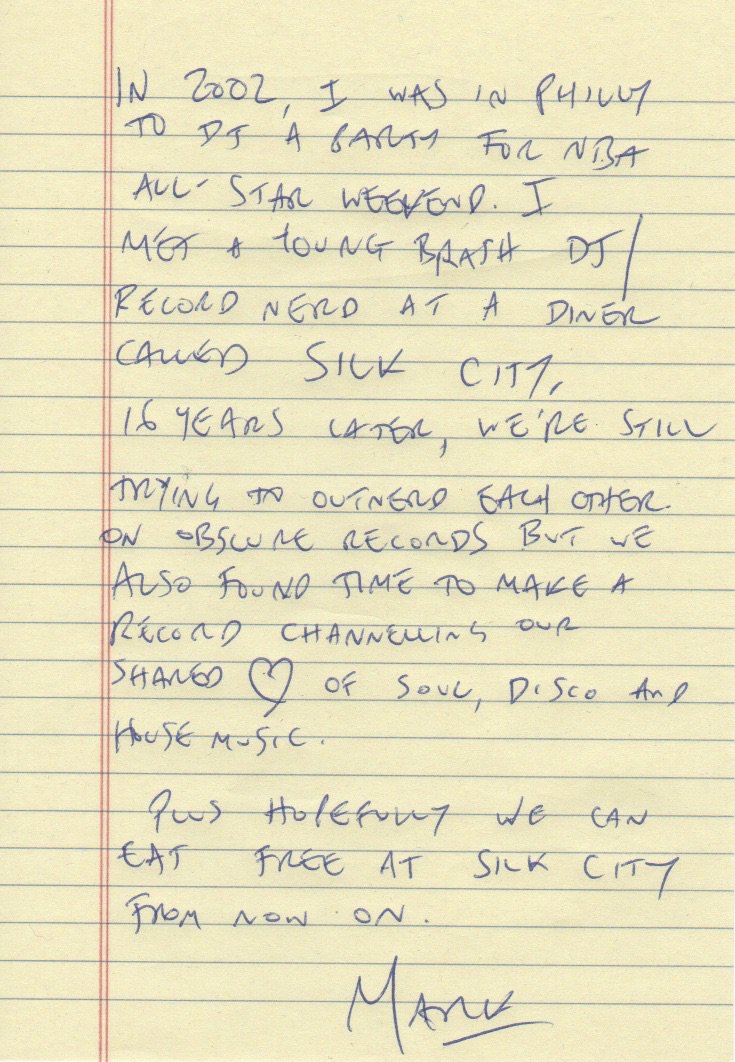 IN 2002, I WAS IN PHILLY
TO DJ A PARTY FOR NBA
ALL-STAR WEEKEND. I
MET A YOUNG BRASH DJ/
RECORD NERD AT A DINER
CALLED SILK CITY.
16 YEARS LATER, WE'RE STILL
TRYING TO OUTNERD EACH OTHER
ON OBSCURE RECORDS BUT WE
ALSO FOUND TIME TO MAKE A
RECORD CHANNELLING OUR
SHARED ♡ OF SOUL, DISCO AND
HOUSE MUSIC.
PLUS HOPEFULLY WE CAN
EAT FREE AT SILK CITY
FROM NOW ON.
MARK